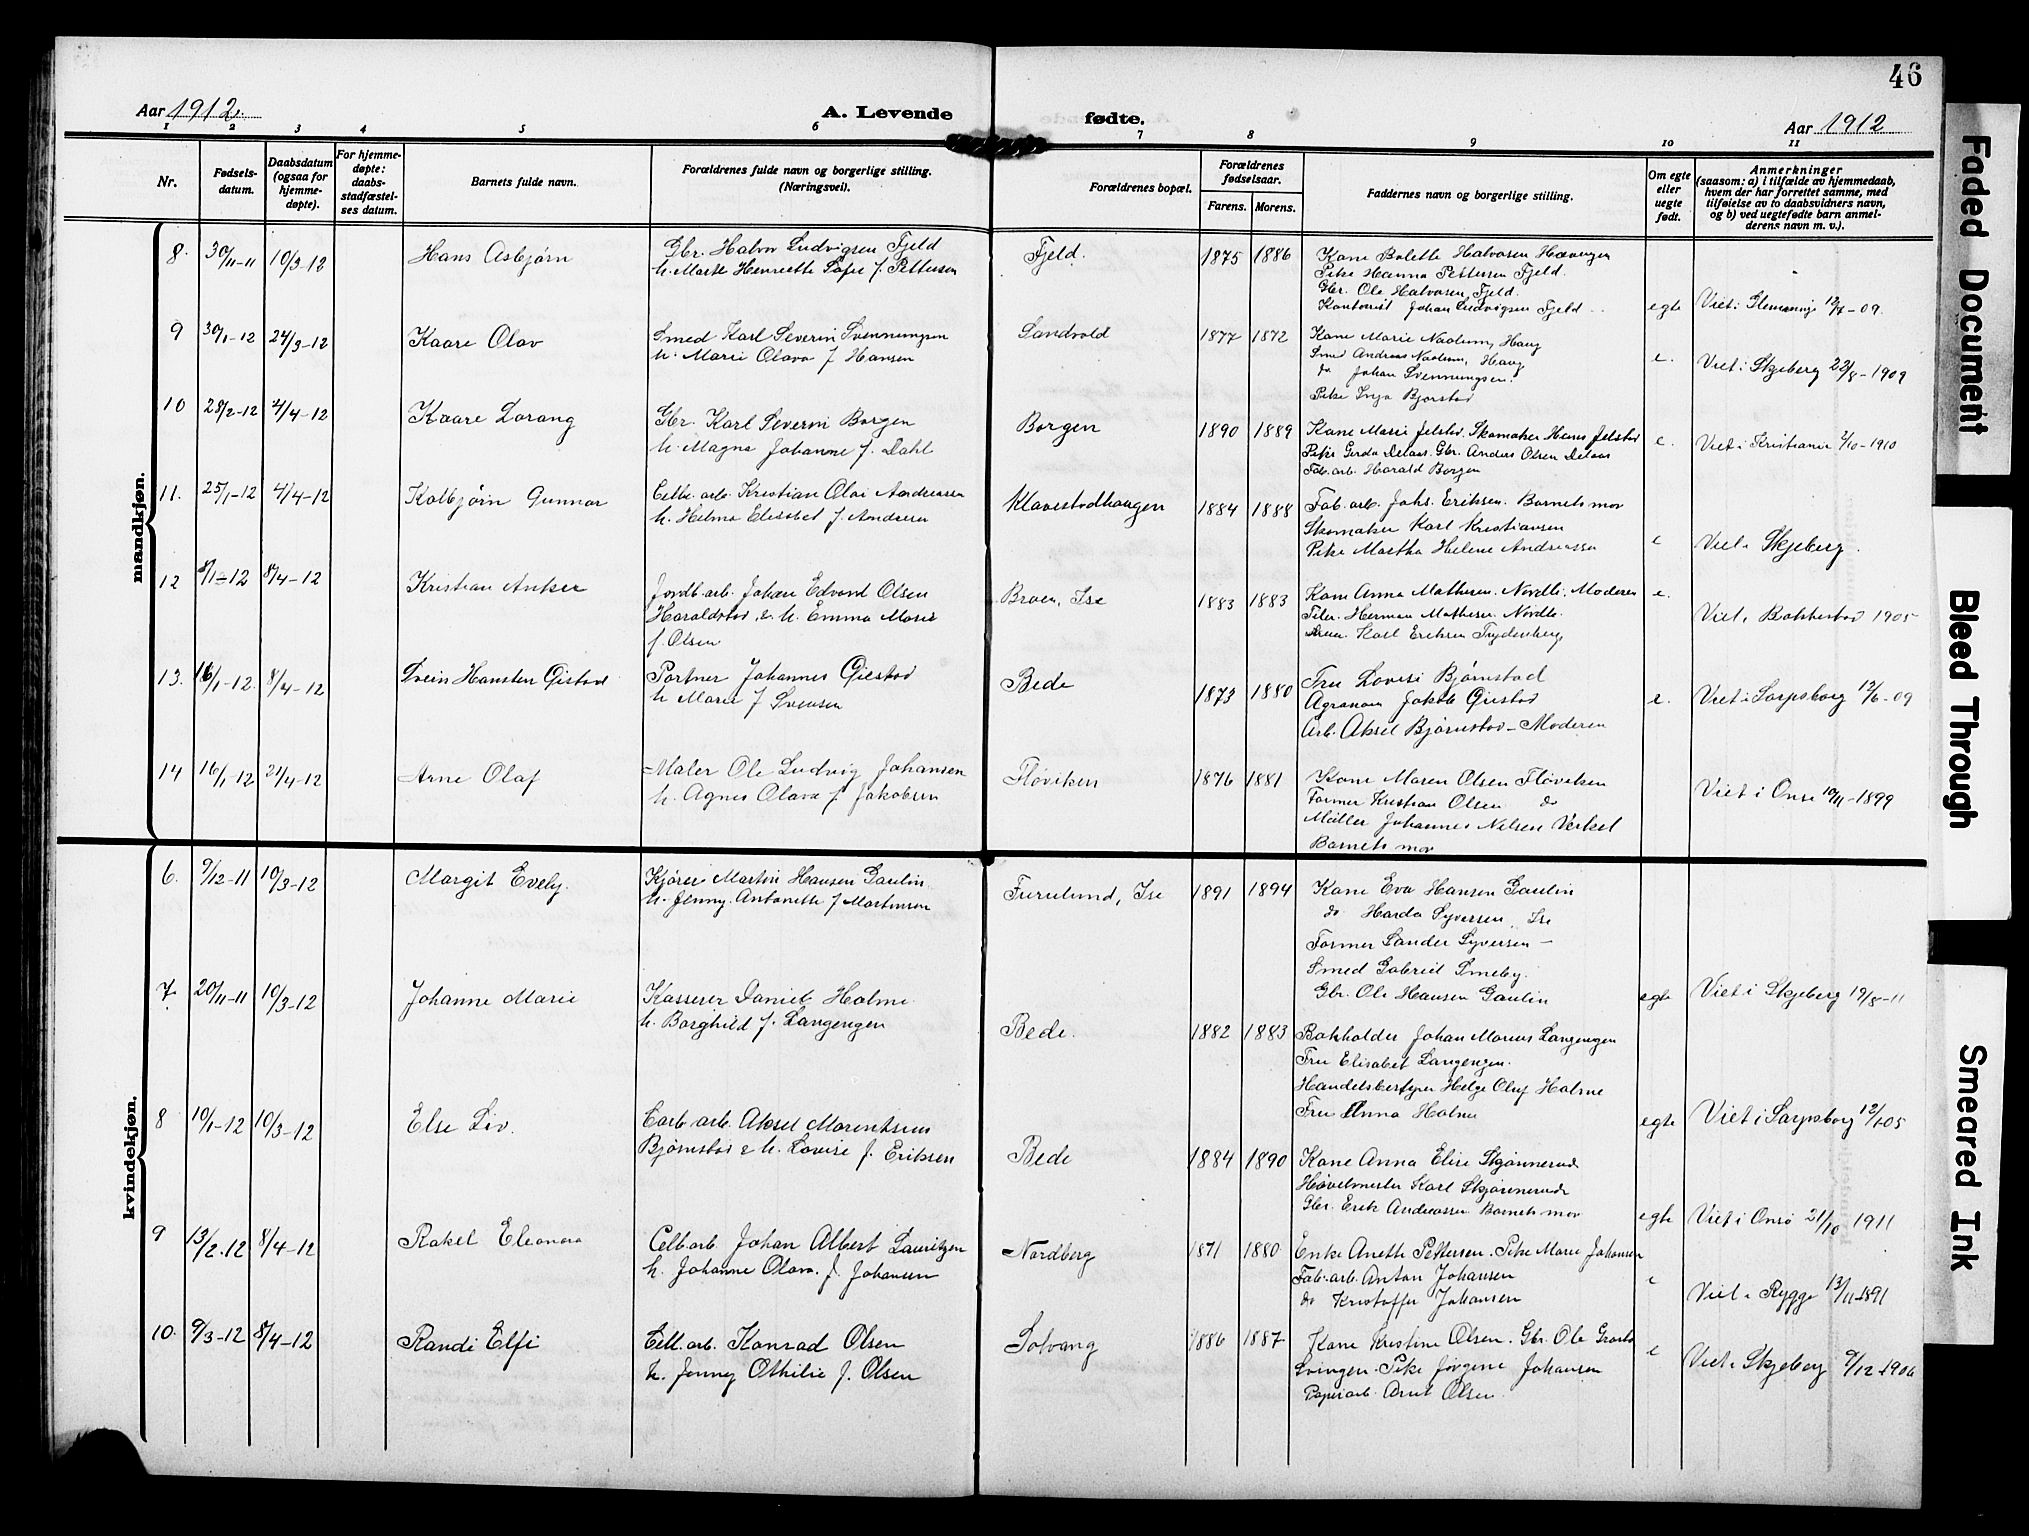 46
Aar 1912.
A. Levende fødte.
Aar 1912
1 2 3 4 5 6 7 8 9 10 11
Nr.
Fødsels-
datum.
Daabsdatum
(ogsaa for
hjemme-
døpte).
For hjemme-
døpte:
daabs-
stadfæstel-
ses datum.
Barnets fulde navn.
Forældrenes fulde navn og borgerlige stilling.
(Næringsvei).
Forældrenes bopæl.
Forældrenes
fødselsaar.
Farens. Morens.
Faddernes navn og borgerlige stilling.
Om egte
eller
uegte
født.
Anmerkninger
(saasom: a) i tilfælde av hjemmedaab,
hvem der har forrettet samme, med
tilføielse av to daabsvidners navn,
og b) ved uegtefødte barn anmel-
derens navn m. v.).
mandkjøn.
8. 30/11-11 10/3-12 Hans Asbjørn
Gbr. Halvor Ludvigsen Fjeld
h. Marte Henriette Sofie f. Pettersen
Fjeld. 1875 1886
Kone Bolette Halvorsen Hauugen
Pike Hanna Pettersen Fjeld.
Gbr. Ole Halvorsen Fjeld.
Kontorist Johan Ludvigsen Fjeld
egte Viet i Glemminge 12/4-09.
9 30/1-12 24/3-12 Kaare Olav
Smed Karl Severin Svenningsen
h. Marie Olava f Hansen
Sandvold 1877 1872
Kone Marie Naolum, Haug
Smed Andreas Naolum, Haug
do Johan Svenningsen.
Pike Inga Bjørstad
e. Viet i Skjeberg 22/8-1909
10 28/2-12 4/4-12 Kaare Lorang
Gbr. Karl Severin Borgen
h. Magna Johanne f. Dahl
Borgen 1890 1889
Kone Marie Jelstad. Skomaker Hans Jelstad
Pike Gerda Delaas. Gbr. Anders Olsen Delaas
Fab. arb. Harald Borgen
e. Viet i Kristiania 2/10-1910
11. 25/1-12 4/4-12 Kolbjørn Gunnar
Cell. arb. Kristian Olai Andreassen
h. Helma Elisabet f. Andersen
Klavestadhaugen 1884 1888
Fab. arb. Johs. Eriksen. Barnets mor
Skomaker Karl Kristiansen
Pike Martha Helene Andreassen
e Viet i Skjeberg.
12 8/1-12 8/4-12 Kristian Anker
Jordb. arb. Johan Edvard Olsen
Haraldstad, & h. Emma Marie
f. Olsen
Broen, Ise 1883 1883
Kone Anna Mathesen. Nordli. Moderen
Filer. Herman Mathesen. Nordli.
Karl Eriksen Frydenberg
e. Viet i Bakkestad 1905
13. 16/1-12. 8/4-12 Svein Hansten Gistad
Portner Johannes Giestad
h Marie f Svensen
Bede 1873 1880
Fru Lovise Bjørnstad
Agronom Jakob Giestad
Arb. Aksel Bjørnstad - Moderen
e. Viet i Sarpsborg 12/6-09
14 16/1-12 21/4-12 Arne Olaf
Maler Ole Ludvig Johansen
h. Agnes Olava f. Jakobsen
Fløviken 1876 1881
Kone Maren Olsen Fløviken
Former Kristian Olsen do
Møller Johannes Nilsen Verket
Barnets mor
Viet i Onsø 10/11-1899
kvindekjøn.
6. 9/12-11 10/3-12 Margit Evely.
Kjører Martin Hansen Gaulin.
h. Jenny Antonette f Martinsen
Furulund, Ise 1891 1894
Kone Eva Hansen Gaulin
do Harda Syversen, Ise
Former Sander Syversen -
Smed Gabriel Smeby.
Gbr. Ole Hansen Gaulin
egte Viet i Skjeberg 19/8-11
7. 20/11-11 10/3-12 Johanne Marie
Kasserer Daniel Holme
h. Borghild f. Langengen
Bede. 1882 1883
Bokholder Johan Marius Langengen
Fru Elisabet Langengen.
Handelsbestyrer Helge Oluf Holme
Fru Anna Holme
egte Viet i Sarpsborg 12/1-05
8 10/1-12 10/3-12 Else Liv.
Carb. arb. Aksel Marentsius
Bjørnstad & h. Lovise f. Eriksen
Bede 1884 1890
Kone Anna Elise Skjønnerud
Høvelmester Karl Skjønnerud
Gbr. Erik Andreassen Barnets mor
egte Viet i Onsø 21/10 1911
9 13/2-12 8/4-12 Rakel Eleonora
Cell. arb. Johan Albert Lauritzen
h. Johanne Olava. f. Johansen
Nordberg 1871 1880
Enke Anette Pettersen. Pike Marie Johansen
Fab. arb. Anton Johansen
do Kristoffer Johansen
e Viet i Rygge 13/11-1891
10. 9/3-12 8/4-12 Randi Elfi
Cell. arb. Konrad Olsen
h. Jenny Othilie f. Olsen
Solvang 1886 1887
Kone Kristine Olsen. Gbr. Ole
Svingen. Pike Jørgine Johansen
Papirarb. Arnt Olsen.
e Viet i Skjeberg 9/12-1906
Faded Document
Bleed Through
Smeared Ink